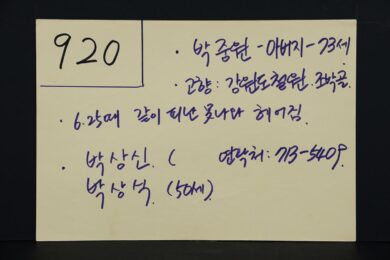 920
· 박중원 - 아버지 - 73세
· 고향: 강원도 철원. 조박골.
· 6.25때 같이 피난 못나다 헤어짐.
· 박상신. ( 연락처: 713-5409.
박상석. (50세).